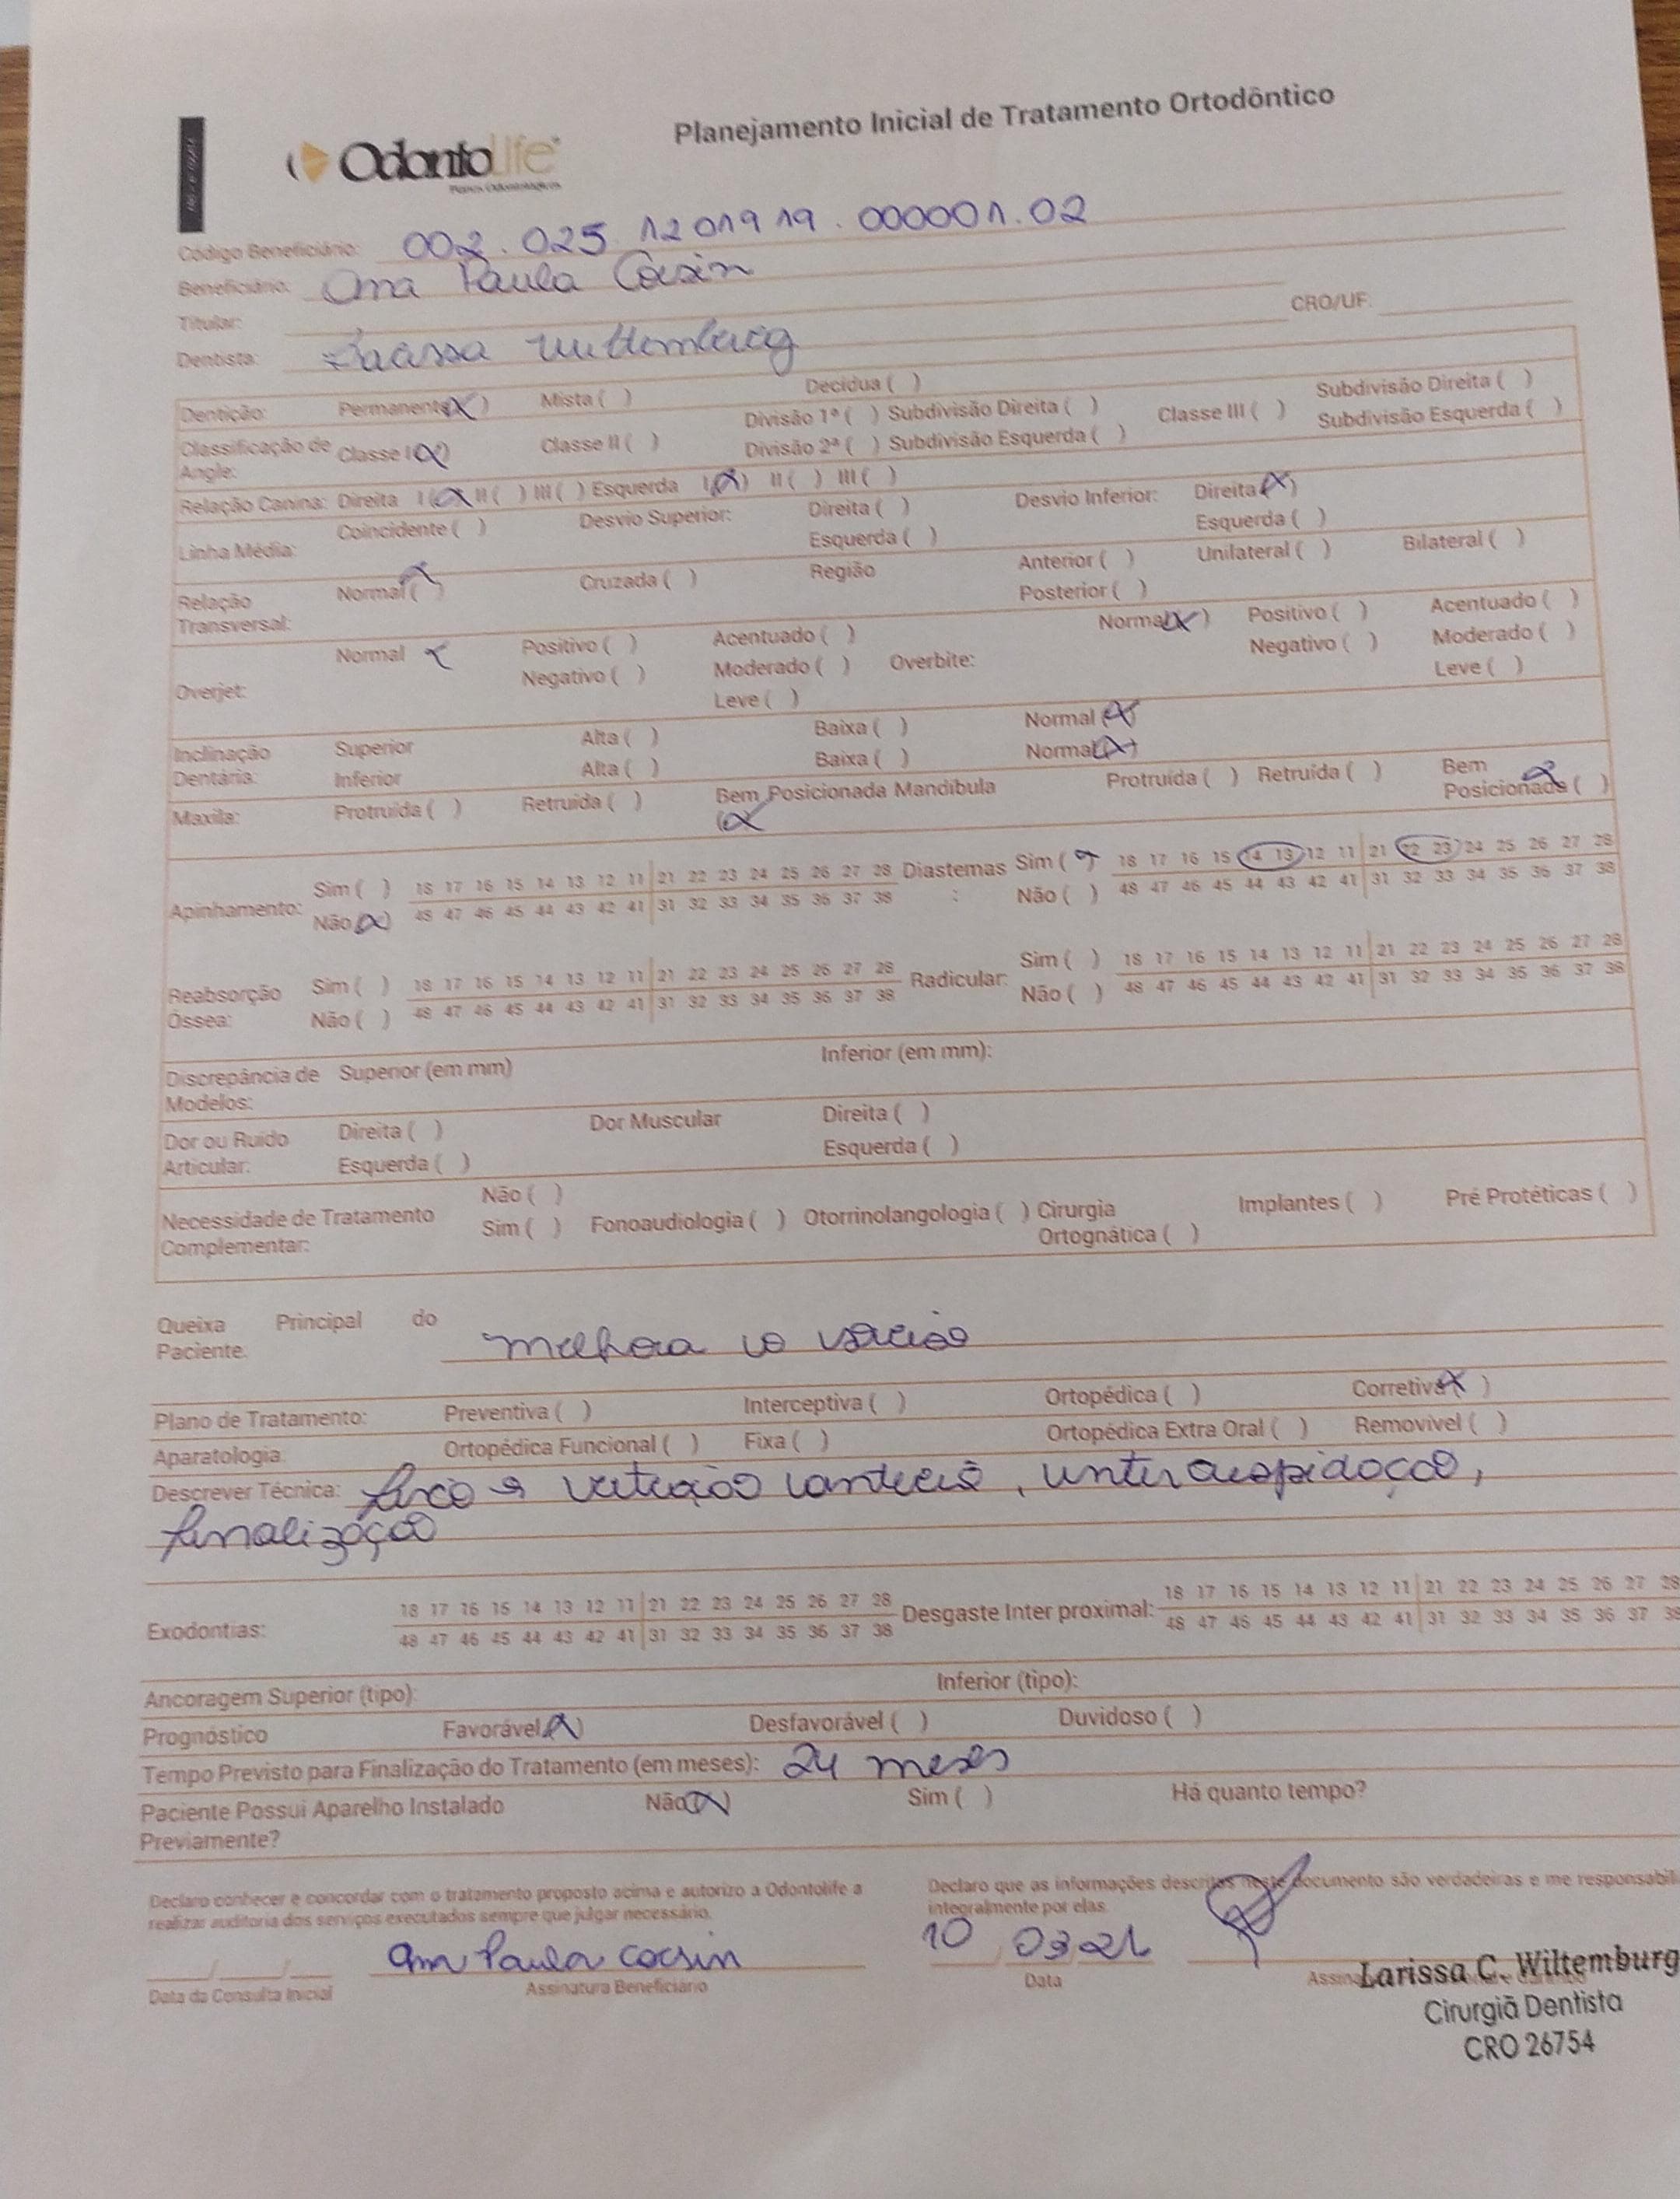 Planejamento Inicial de Tratamento Ortodôntico
OdontoLife
Planos Odontológicos
Código Beneficiário: 002.025.1201919.000001.02
Beneficiário: Ana Paula Cocsin
Titular:
CRO/UF:
Dentista: Larissa Wiltemburg
Dentição: Permanente (X) Mista ( ) Decídua ( )
Classificação de Angle: Classe I (X) Classe II ( ) Divisão 1ª ( ) Subdivisão Direita ( ) Classe III ( ) Subdivisão Direita ( )
Divisão 2ª ( ) Subdivisão Esquerda ( ) Subdivisão Esquerda ( )
Relação Canina: Direita I (X) II ( ) III ( ) Esquerda I (X) II ( ) III ( )
Linha Média: Coincidente ( ) Desvio Superior: Direita ( ) Desvio Inferior: Direita (X)
Esquerda ( ) Esquerda ( )
Relação Transversal: Normal (X) Cruzada ( ) Região Anterior ( ) Unilateral ( ) Bilateral ( )
Posterior ( )
Overjet: Normal X Positivo ( ) Acentuado ( ) Overbite: Normal (X) Positivo ( ) Acentuado ( )
Negativo ( ) Moderado ( ) Negativo ( ) Moderado ( )
Leve ( ) Leve ( )
Inclinação Dentária: Superior Alta ( ) Baixa ( ) Normal (X)
Inferior Alta ( ) Baixa ( ) Normal (X)
Maxila: Protruída ( ) Retruída ( ) Bem Posicionada (X) Mandíbula Protruída ( ) Retruída ( ) Bem Posicionada (X)
Apinhamento: Sim ( ) 18 17 16 15 14 13 12 11 21 22 23 24 25 26 27 28 Diastemas: Sim (X) 18 17 16 15 14 13 12 11 21 22 23 24 25 26 27 28
Não (X) 48 47 46 45 44 43 42 41 31 32 33 34 35 36 37 38 Não ( ) 48 47 46 45 44 43 42 41 31 32 33 34 35 36 37 38
Reabsorção Óssea: Sim ( ) 18 17 16 15 14 13 12 11 21 22 23 24 25 26 27 28 Radicular: Sim ( ) 18 17 16 15 14 13 12 11 21 22 23 24 25 26 27 28
Não ( ) 48 47 46 45 44 43 42 41 31 32 33 34 35 36 37 38 Não ( ) 48 47 46 45 44 43 42 41 31 32 33 34 35 36 37 38
Discrepância de Modelos: Superior (em mm) Inferior (em mm):
Dor ou Ruído Articular: Direita ( ) Dor Muscular Direita ( )
Esquerda ( ) Esquerda ( )
Necessidade de Tratamento Complementar: Não ( )
Sim ( ) Fonoaudiologia ( ) Otorrinolangologia ( ) Cirurgia Ortognática ( ) Implantes ( ) Pré Protéticas ( )
Queixa Principal do Paciente: melhora
Plano de Tratamento: Preventiva ( ) Interceptiva ( ) Ortopédica ( ) Corretiva (X)
Aparatologia: Ortopédica Funcional ( ) Fixa ( ) Ortopédica Extra Oral ( ) Removível ( )
Descrever Técnica: fixo intercuspidação,
finalização
Exodontias: 18 17 16 15 14 13 12 11 21 22 23 24 25 26 27 28 Desgaste Inter proximal: 18 17 16 15 14 13 12 11 21 22 23 24 25 26 27 28
48 47 46 45 44 43 42 41 31 32 33 34 35 36 37 38 48 47 46 45 44 43 42 41 31 32 33 34 35 36 37 38
Ancoragem Superior (tipo): Inferior (tipo):
Prognóstico Favorável (X) Desfavorável ( ) Duvidoso ( )
Tempo Previsto para Finalização do Tratamento (em meses): 24 meses
Paciente Possui Aparelho Instalado Previamente? Não (X) Sim ( ) Há quanto tempo?
Declaro conhecer e concordar com o tratamento proposto acima e autorizo a Odontolife a
realizar auditoria dos serviços executados sempre que julgar necessário.
Declaro que as informações descritas neste documento são verdadeiras e me responsabili
integralmente por elas.
Ana Paula Cocsin
10 03 21
Data da Consulta Inicial
Assinatura Beneficiário
Data
Larissa C. Wiltemburg
Cirurgiã Dentista
CRO 26754